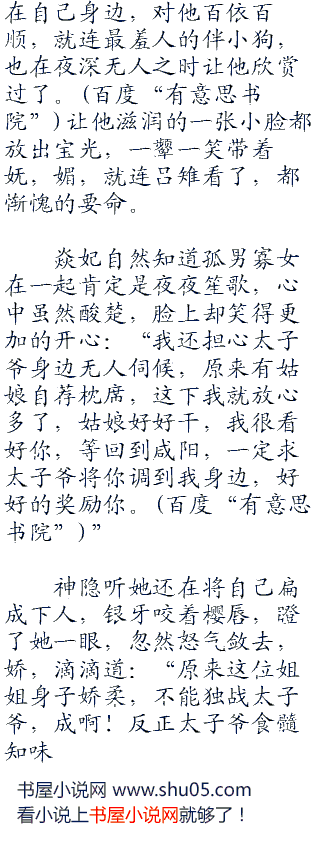 在自己身边，对他百依百
顺，就连最羞人的伴小狗，
也在夜深无人之时让他欣赏
过了。(百度“有意思书
院”)让他滋润的一张小脸都
放出宝光，一颦一笑带着
妩，媚，就连吕雉看了，都
惭愧的要命。
焱妃自然知道孤男寡女
在一起肯定是夜夜笙歌，心
中虽然酸楚，脸上却笑得更
加的开心：“我还担心太子
爷身边无人伺候，原来有姑
娘自荐枕席，这下我就放心
多了，姑娘好好干，我很看
好你，等回到咸阳，一定求
太子爷将你调到我身边，好
好的奖励你。(百度“有意思
书院”)”
神隐听她还在将自己扁
成下人，银牙咬着樱唇，瞪
了她一眼，忽然怒气敛去，
娇，滴滴道：“原来这位姐
姐身子娇柔，不能独战太子
爷，成啊！反正太子爷食髓
知味
书屋小说网 www.shu05.com
看小说上书屋小说网就够了！